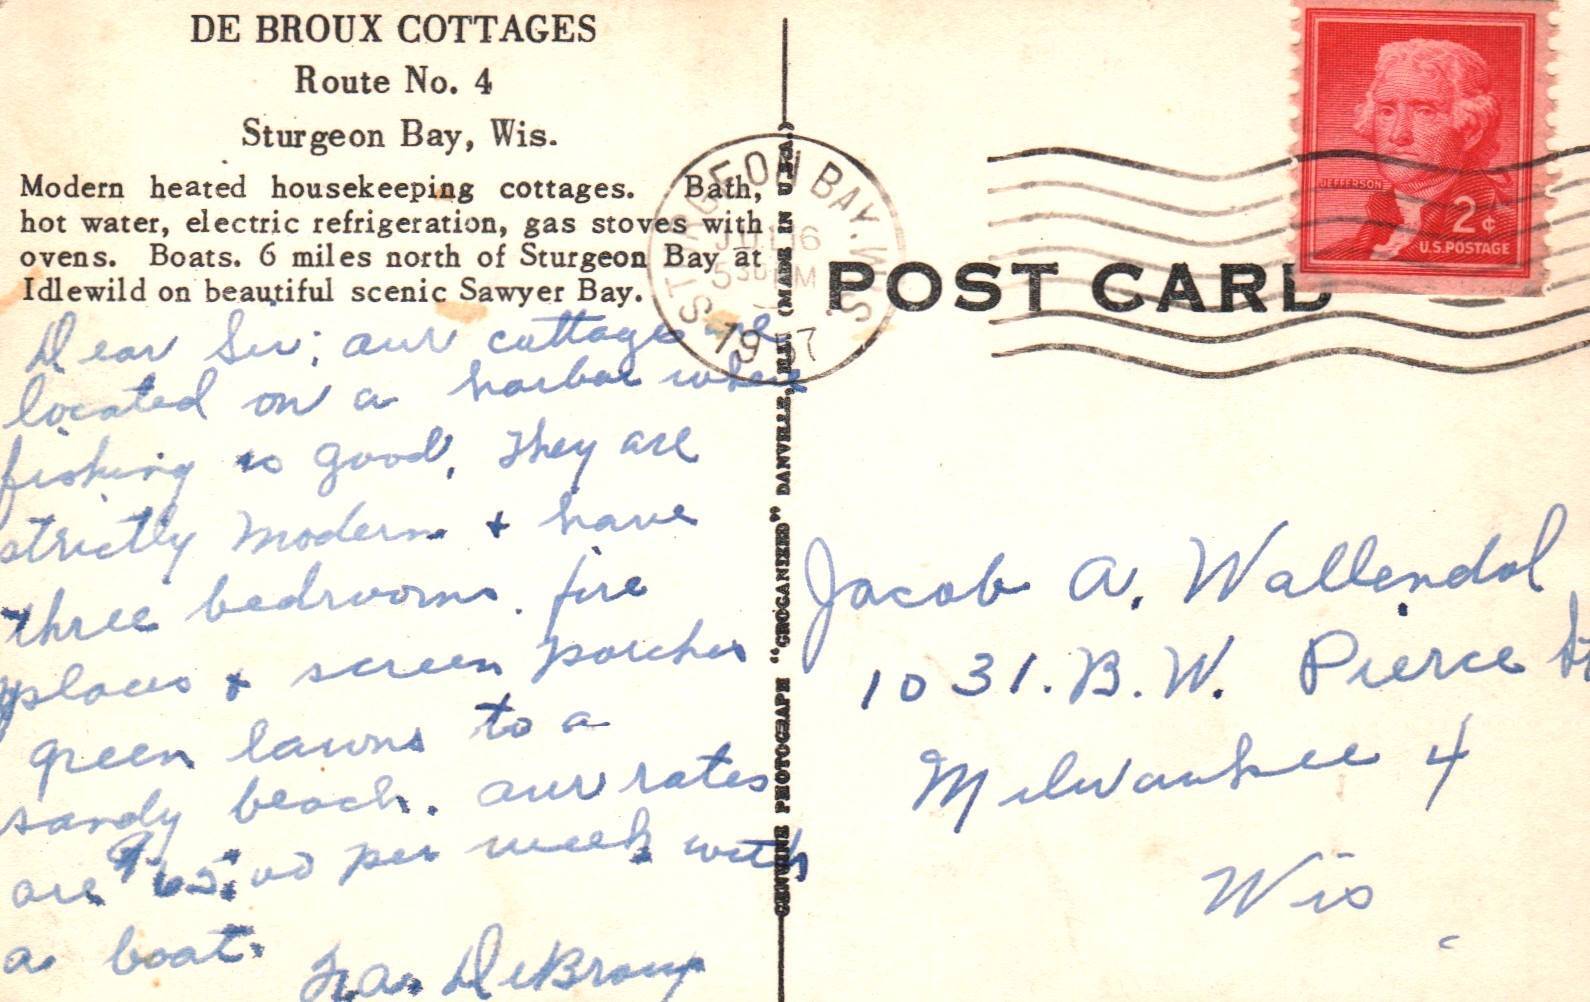 DE BROUX COTTAGES
Route No. 4
Sturgeon Bay, Wis.
Modern heated housekeeping cottages. Bath,
hot water, electric refrigeration, gas stoves with
ovens. Boats. 6 miles north of Sturgeon Bay at
Idlewild on beautiful scenic Sawyer Bay.
Dear Sir; our cottages are
located on a harbor where
fishing is good. They are
strictly modern + have
three bedrooms. fire
places + screen porches
green lawns to a
sandy beach. our rates
are $65.00 per week with
a boat.
DeBroux
GENUINE PHOTOGRAPH "CROCANIZED" DANVILLE, ILL. (MADE IN U.S.A.)
STURGEON BAY, WIS.
JUL 16
530 PM
1957
POST CARD
JEFFERSON
2¢
U.S. POSTAGE
Jacob A. Wallendal
1031. B. W. Pierce St
Milwaukee 4
Wis